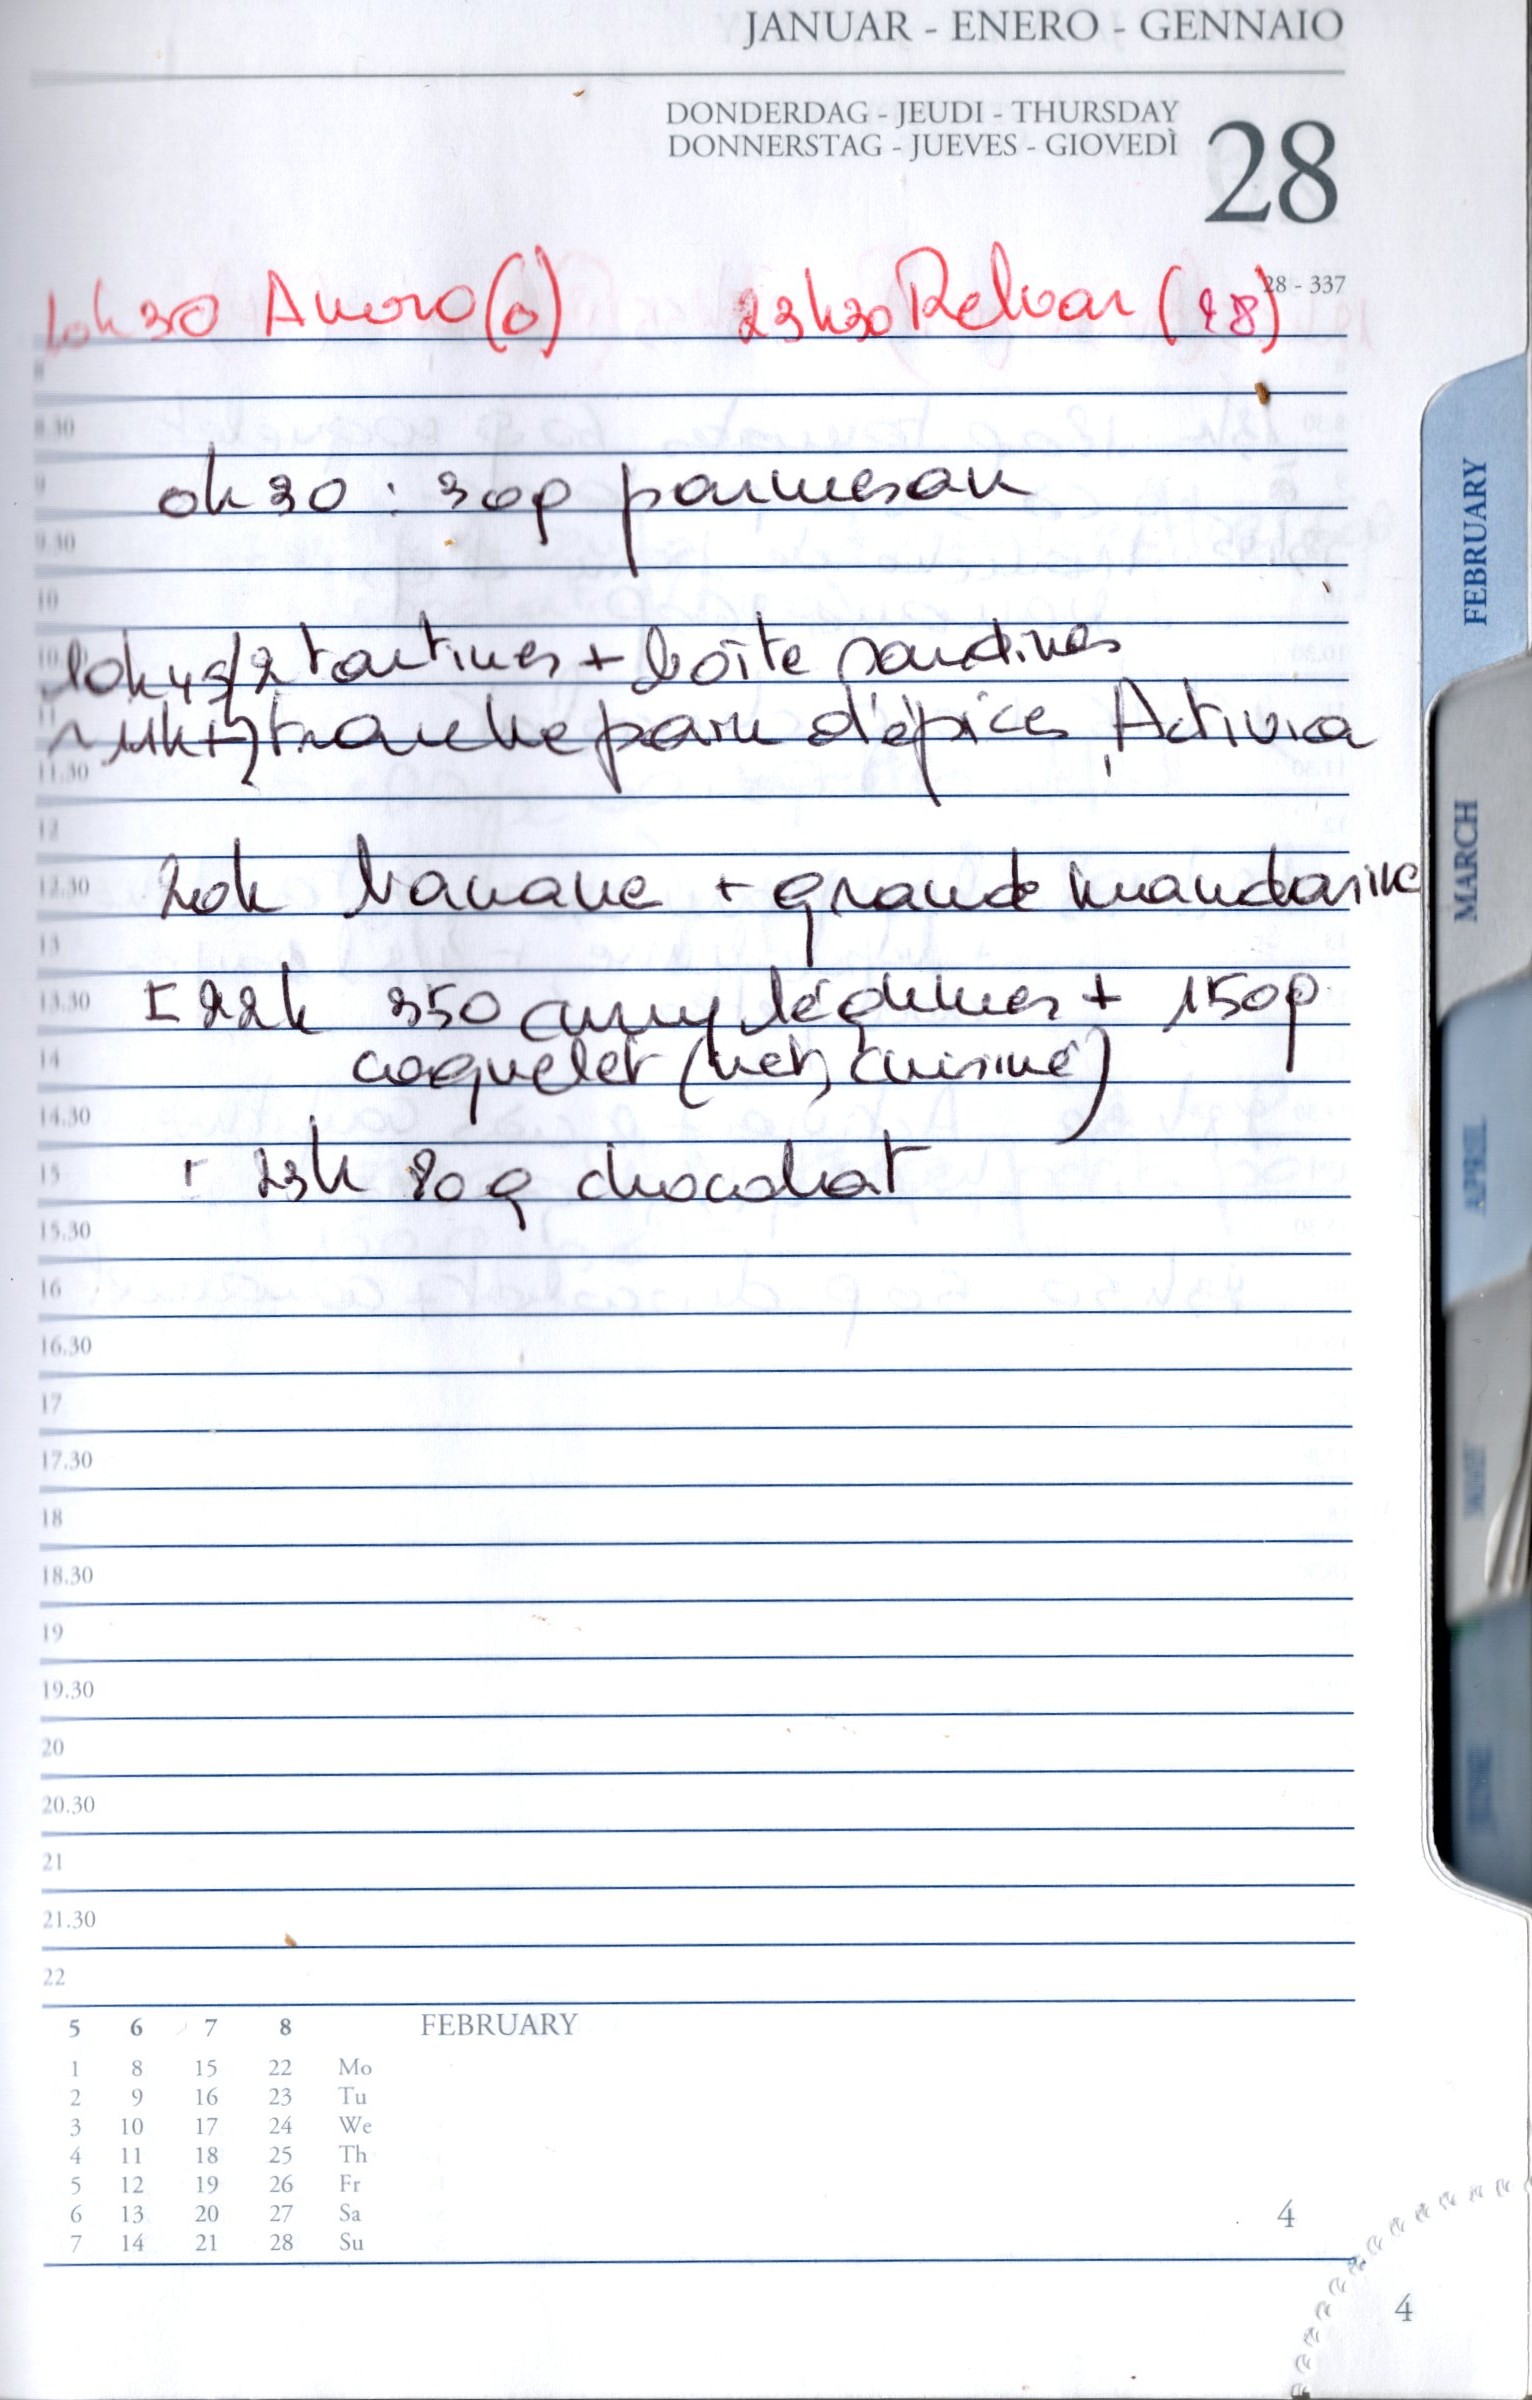 JANUAR - ENERO - GENNAIO
DONDERDAG - JEUDI - THURSDAY
DONNERSTAG - JUEVES - GIOVEDÌ
28
28 - 337
10h30 Anoro (0) 23h30 Relvar (28)
8
8.30
0h30 : 30g parmesan
9
9.30
10
10h45/2 tartines + boîte sardines
11
~ 11h+ tranche pain d'épices, Activia
11.30
12
12.30
20h banane + grande mandarine
13
13.30
22h 350 curry légumes + 150g
14
coquelet (net, cuisiné)
14.30
15
23h 80g chocolat
15.30
16
16.30
17
17.30
18
18.30
19
19.30
20
20.30
21
21.30
22
5 6 7 8 FEBRUARY
1 8 15 22 Mo
2 9 16 23 Tu
3 10 17 24 We
4 11 18 25 Th
5 12 19 26 Fr
6 13 20 27 Sa
7 14 21 28 Su
4
4
FEBRUARY
MARCH
APRIL